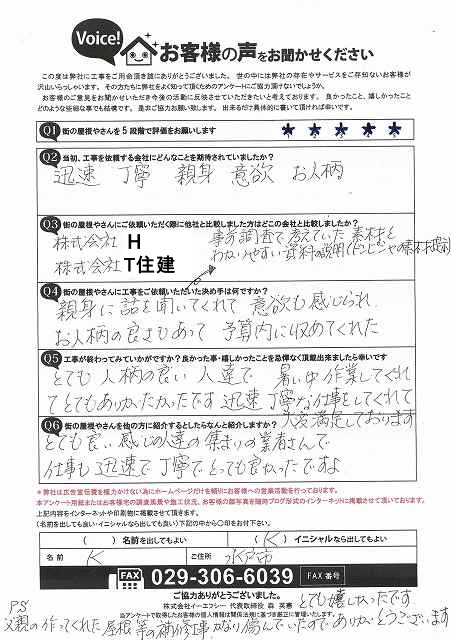 Voice!
お客様の声をお聞かせください
この度は弊社に工事をご用命頂き誠にありがとうございました。 世の中には弊社の存在やサービスをご存知ないお客様が
沢山いらっしゃいます。その方たちに弊社をよく知って頂くためのアンケートにご協力頂けないでしょうか。
お客様のご意見をお聞かせいただき今後の活動に反映させていただきたいと考えております。 良かったこと、嬉しかったこと
どのような些細な事でも結構です。 是非ご協力お願い致します。 出来るだけ具体的に書いて頂ければ幸いです。
Q1 街の屋根やさんを5段階で評価をお願いします
★ ★ ★ ★ ★
Q2 当初、工事を依頼する会社にどんなことを期待されていましたか?
迅速 丁寧 親身 意欲 お人柄
Q3 街の屋根やさんにご依頼いただく際に他社と比較しました方はどこの会社と比較しましたか?
株式会社 H
株式会社 T住建
事前調査で考えていた素材を
わかりやすい資料の説明
Q4 街の屋根やさんに工事をご依頼いただいた決め手は何ですか?
親身に話を聞いてくれて 意欲も感じられ
お人柄の良さもあって 予算内に収めてくれた
Q5 工事が終わってみていかがですか?良かった事・嬉しかったことを忌憚なく頂戴出来ましたら幸いです
とても 人柄の良い 人達で 暑い中作業してくれ
てとてもありがたかったです 迅速丁寧な仕事をしてくれて
大変満足しております
Q6 街の屋根やさんを他の方に紹介するとしたらなんと紹介しますか?
とても良い感じの人達の集まりの業者さんで
仕事も迅速で丁寧で、とっても良かったですよ
*弊社は広告宣伝費を極力かけない為にホームページだけを頼りにお客様への営業活動を行っております。
本アンケート用紙またはお客様宅の調査風景や施工状況、お客様の顔写真を随時ブログ形式のインターネットに掲載させて頂いております。
上記内容をインターネットや印刷物に掲載させて頂きます。
(名前を出しても良い・イニシャルなら出しても良い) 下記の中から〇印をお付下さい。
( ) 名前を出してもよい
( K ) イニシャルなら出してもよい
名 前 K
ご住所 水戸市
FAX 029-306-6039 FAX 番号
ご協力ありがとうございました。
株式会社イーエフシー 代表取締役 森 英憲
当アンケートで取得したお客様の個人情報は関係法規に基づき厳正に管理いたします。
とても嬉しかったです
P.S
父親の作ってくれた屋根等の補修工事かなり傷んでいたのでありがとうございます